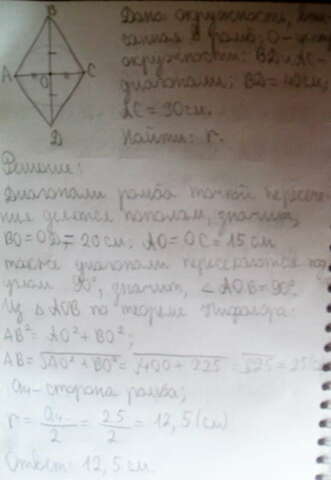 B
A
C
O
D
Дано: окружность, впи-
санная в ромб; O - центр
окружности; BD и AC -
диагонали; BD = 40 см;
AC = 30 см.
Найти: r.
Решение:
Диагонали ромба точкой пересече-
ния делятся пополам, значит,
BO = OD = 20 см; AO = OC = 15 см
также диагонали пересекаются под
углом 90°, значит, ∠AOB = 90°.
Из △AOB по теореме Пифагора:
AB² = AO² + BO²;
AB = √AO² + BO² = √400 + 225 = √625 = 25 см
a₄ - сторона ромба;
r = a₄/2 = 25/2 = 12,5 (см)
Ответ: 12,5 см.